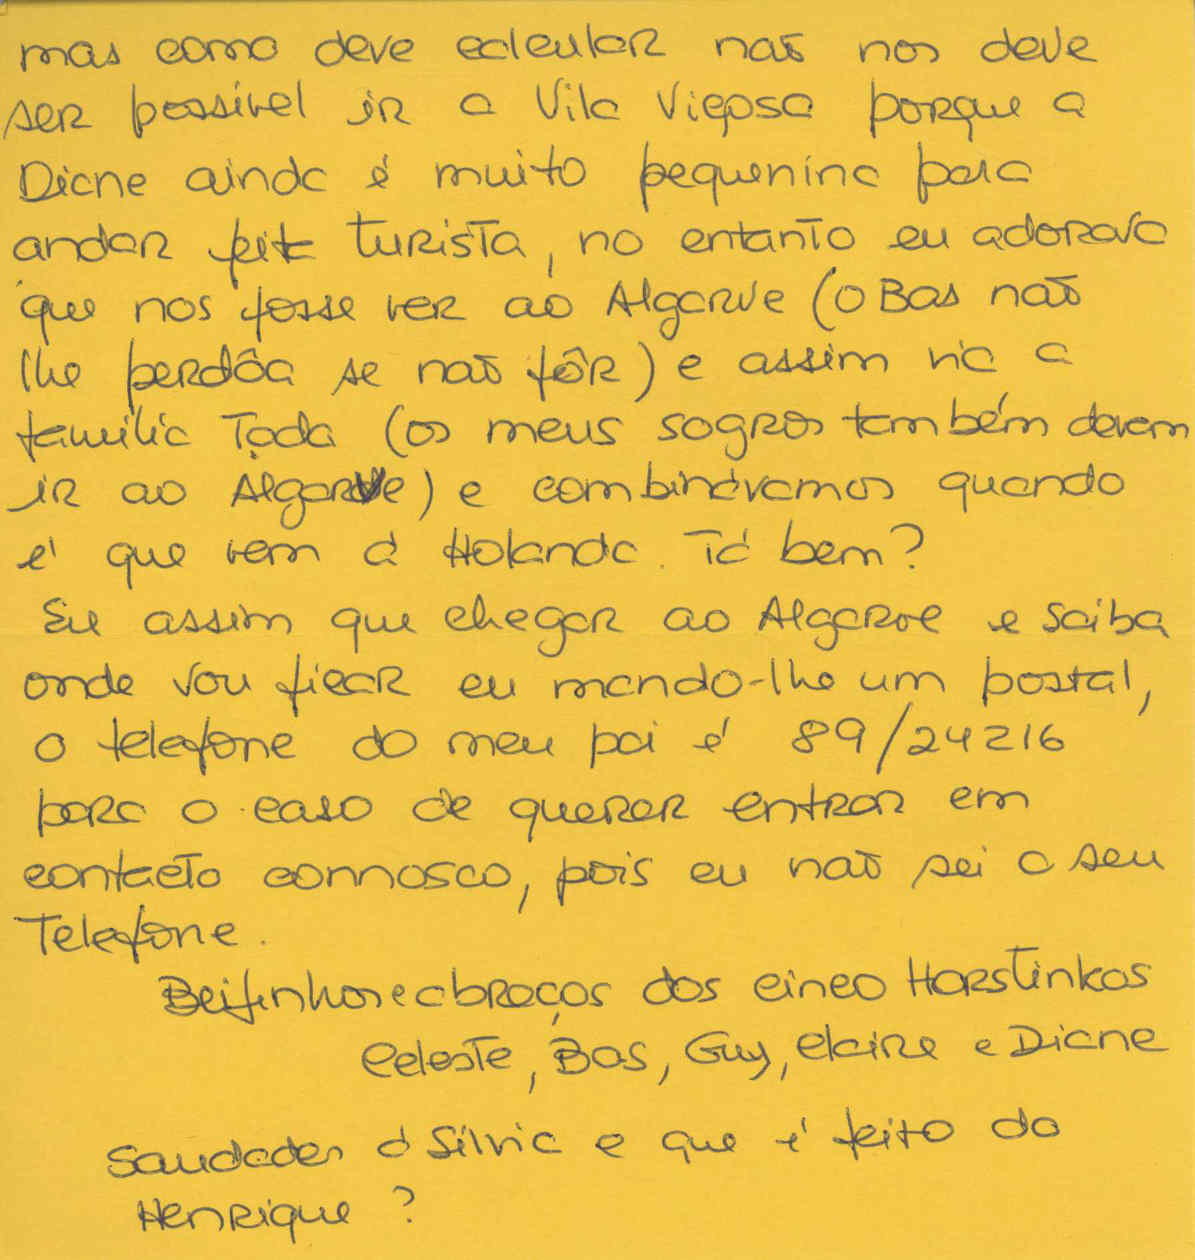 mas como deve calcular não nos deve
ser possível ir a Vila Viçosa porque a
Diane ainda é muito pequenina para
andar feita turista, no entanto eu adorava
que nos fosse ver ao Algarve (o Bas não
lhe perdôa se não fôr) e assim via a
família Toda (os meus sogros também devem
ir ao Algarve) e combinávamos quando
é que vem à Holanda. Tá bem?
Eu assim que chegar ao Algarve e saiba
onde vou ficar eu mando-lhe um postal,
o telefone do meu pai é 89/24216
para o caso de querer entrar em
contacto connosco, pois eu não sei o seu
Telefone.
Beijinhos e abraços dos cinco Horstinkos
Celeste, Bas, Guy, Claire e Diane
Saudades à Sílvia e que é feito do
Henrique ?